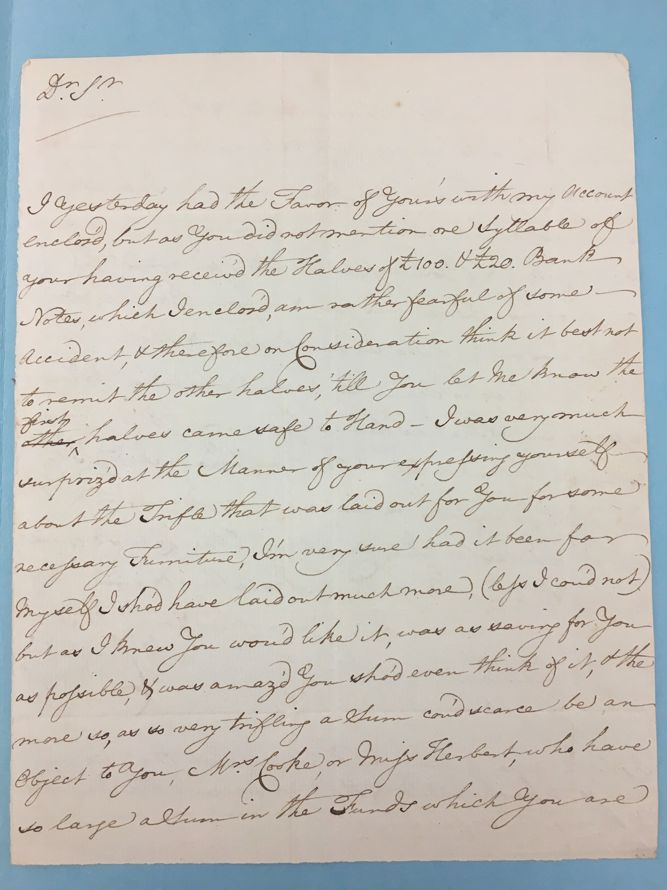 Dr. Sr.
I Yesterday had the Favor of Your's with my Account
enclos'd, but as You did not mention one Syllable of
your having receiv'd the Halves of £100. & £20. Bank
Notes, which I enclos'd, am rather fearful of some
Accident, & therefore on Consideration think it best not
to remit the other halves, 'till You let Me know the
first
other halves came safe to Hand – I was very much
surpriz'd at the Manner of your expressing yourself
about the Trifle that was laid out for You for some
necessary Furniture, I'm very sure had it been for
Myself I sho'd have laid out much more, (less I cou'd not)
but as I knew You wou'd like it, was as saving for You
as possible, & was amaz'd You sho'd even think of it, & the
more so, as so very trifling a Sum cou'd scarce be an
Object to You, Mrs. Cooke, or Miss Herbert, who have
so large a Sum in the Funds which You are